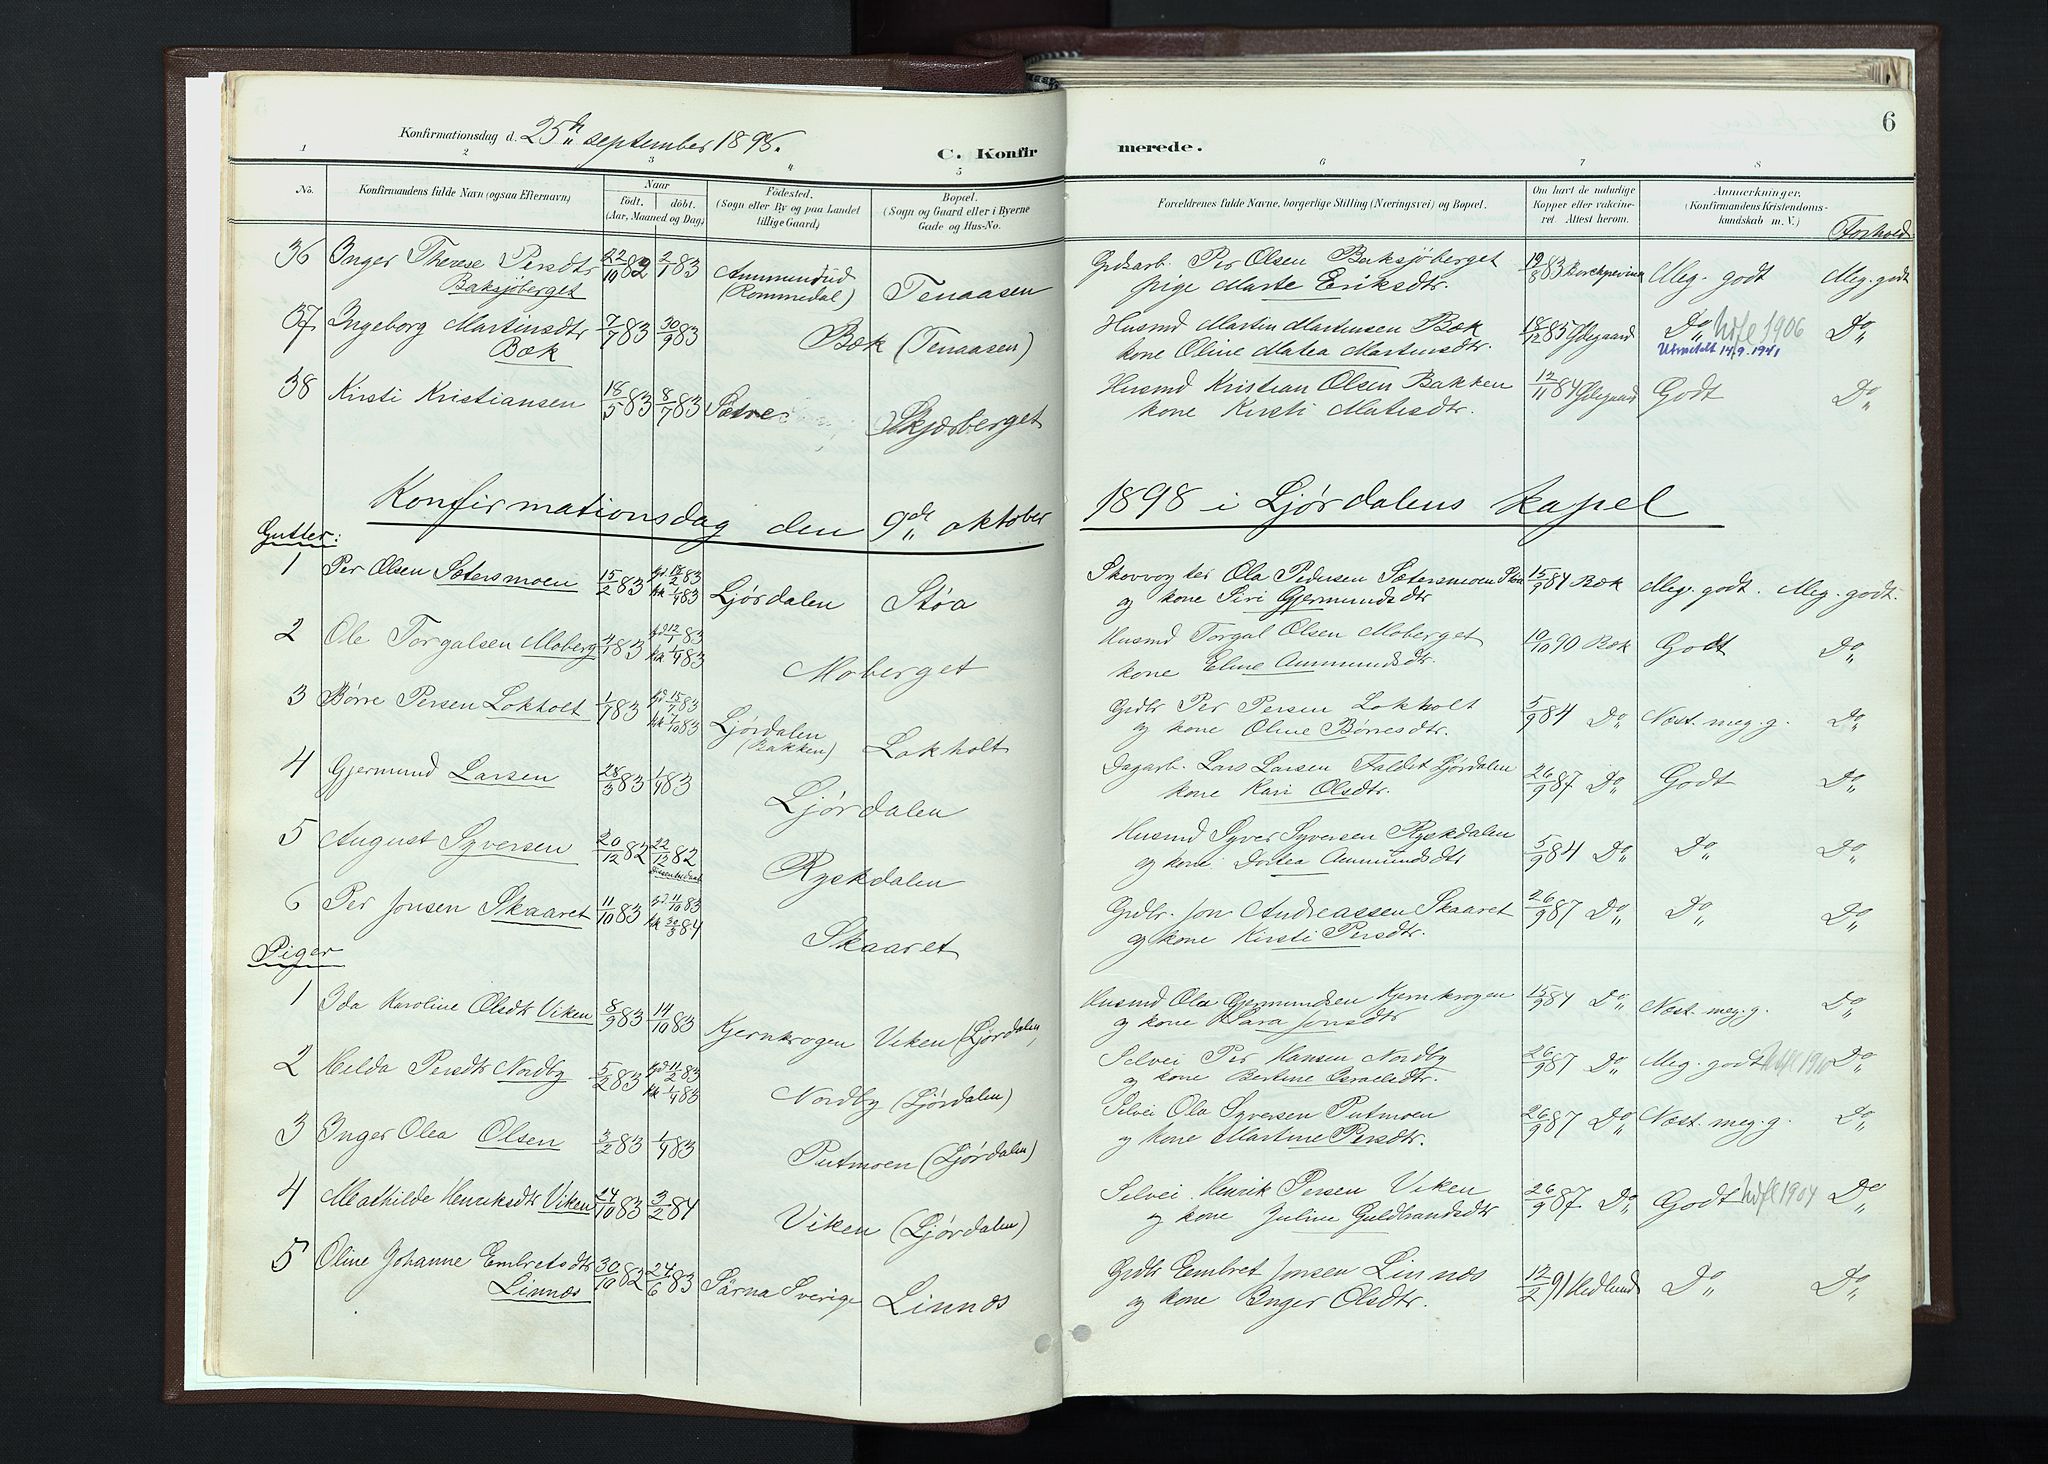 6
Konfirmationsdag d. 25de september 1898.
C. Konfirmerede.
1 2 3 4 5 6 7 8
No. Konfirmandens fulde Navn (ogsaa Efternavn) Naar födt. döbt. (Aar, Maaned og Dag) Födested. (Sogn eller By og paa Landet tillige Gaard) Bopæl. (Sogn og Gaard eller i Byerne Gade og Hus-No. Forældrenes fulde Navne, borgerlige Stilling (Næringsvei) og Bopæl. Om havt de naturlige Kopper eller vaccineret. Attest herom. Anmærkninger, (Konfirmandens Kristendomskundskab m. V.) Forhold
36 Inger Therese Persdtr 22/10 82 2/1 83 Ammundrud Grdsarb. Per Olsen Baksjøberget 19/8 83 Meg. godt Meg. godt
Baksjøberget (Rommedal) Tenaasen pige Marte Eriksdtr.
37 Ingeborg Martinsdtr 7/7 83 30/9 83 Bæk (Tenaasen) Husmd Martin Martinsen Bæk 18/12 85 Ødegaard Do Utmeldt 14.9.1941 Do
Bæk kone Oline Matea Martinsdtr.
38 Kirsti Kristiansen 18/5 83 8/7 83 Sætre Skjærberget Husmd Kristian Olsen Bakken 12/11 84 Ødegaard Godt Do
kone Kirsti Matisdtr.
Konfirmationsdag den 9de oktober 1898 i Ljørdalens kapel
Gutter:
1 Per Olsen Sætersmoen 15/2 83 gd 18/2 83 Ljørdalen Støa Skovvogter Ola Pedersen Sætersmoen Støa 15/9 84 Bæk Meg. godt. Meg. godt.
kk 1/4 83 og kone Siri Gjermundsdtr
2 Ole Torgalsen Moberg 4/1 83 gd 12/1 83 Moberget Husmd Torgal Olsen Moberget 10/10 90 Bæk Godt Do
kk 1/4 83 kone Eline Ammundsdtr.
3 Børre Persen Lokholt 1/7 83 gd 15/7 83 Ljørdalen Lokholt Grdbr Per Persen Lokholt 5/9 84 Do Næst. meg. g. Do
kk 7/10 83 (Bakken) og kone Oline Børresdtr.
4 Gjermund Larsen 28/3 83 1/4 83 Ljørdalen Dagarb. Lars Larsen Faldet Ljørdalen 26/9 87 Do Godt Do
kone Kari Olsdtr.
5 August Syversen 20/12 82 22/12 82 Ryskdalen Husmd Syver Syversen Ryskdalen 5/9 84 Do Do Do
og kone Dortea Ammundsdtr
6 Per Jonsen Skaaret 11/10 83 gd 11/10 83 Skaaret Grdbr. Jon Andreassen Skaaret 26/9 87 Do Do Do
kk 30/3 84 og kone Kirsti Persdtr.
Piger
1 Ida Karoline Olsdtr Viken 8/9 83 14/10 83 Kjernkrogen Viken (Ljørdalen) Husmd Ola Gjermundsen Kjernkrogen 15/9 84 Do Næst. meg. g. Do
og kone Sara Jonsdtr
2 Hilda Persdtr Nordby 5/2 83 gd 11/2 83 Nordby (Ljørdalen) Selvei Per Hansen Nordby 26/9 87 Do Meg. godt Do
kk 1/4 83 og kone Bertine Israelsdtr.
3 Inger Olea Olsen 3/2 83 1/4 83 Putmoen (Ljørdalen) Selvei Ola Syversen Putmoen 26/9 87 Do Næst. meg. g. Do
og kone Martine Persdtr.
4 Mathilde Henriksdtr Viken 24/10 83 3/2 84 Viken (Ljørdalen) Selvei. Henrik Persen Viken 26/9 87 Do Godt 1904 Do
og kone Juline Guldbrandsdtr
5 Oline Johanne Embretsdtr 30/10 82 24/6 83 Särna Sverige Linnæs Grdbr Embret Jonsen Linnæs 12/2 91 Hedlund Do Do
Linnæs og kone Inger Olsdtr.